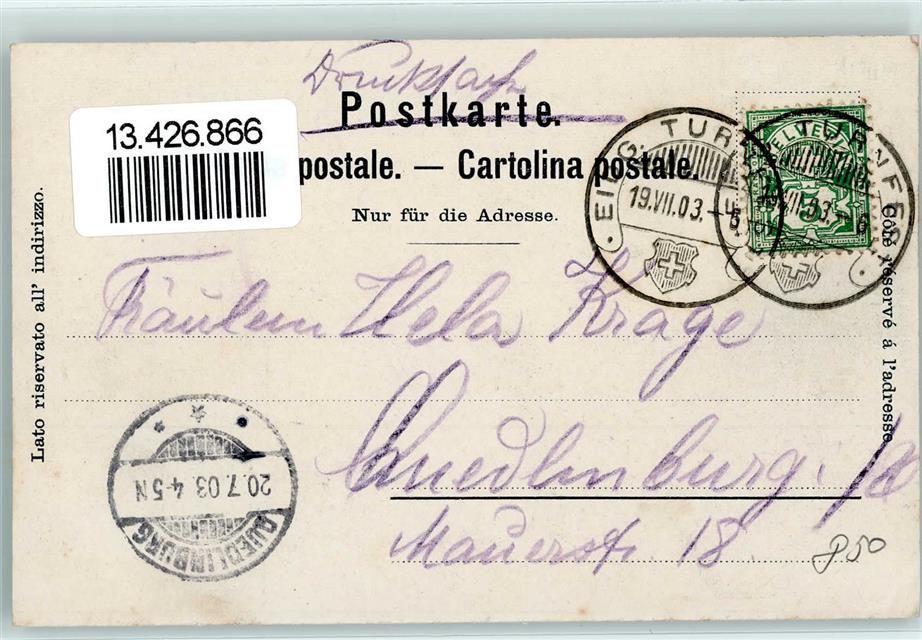 Drucksache
Postkarte.
13.426.866
postale. — Cartolina postale.
Nur für die Adresse.
EIDG. TURNFEST
19.VII.03.–5
EIDG. TURNFEST
19.VII.03.–5
HELVETIA
5
Lato riservato all' indirizzo.
Côté réservé á l'adresse
Fräulein Hela Krage
Quedlinburg. /H
Mauerstr. 18.
QUEDLINBURG
20.7.03. 4-5 N
850